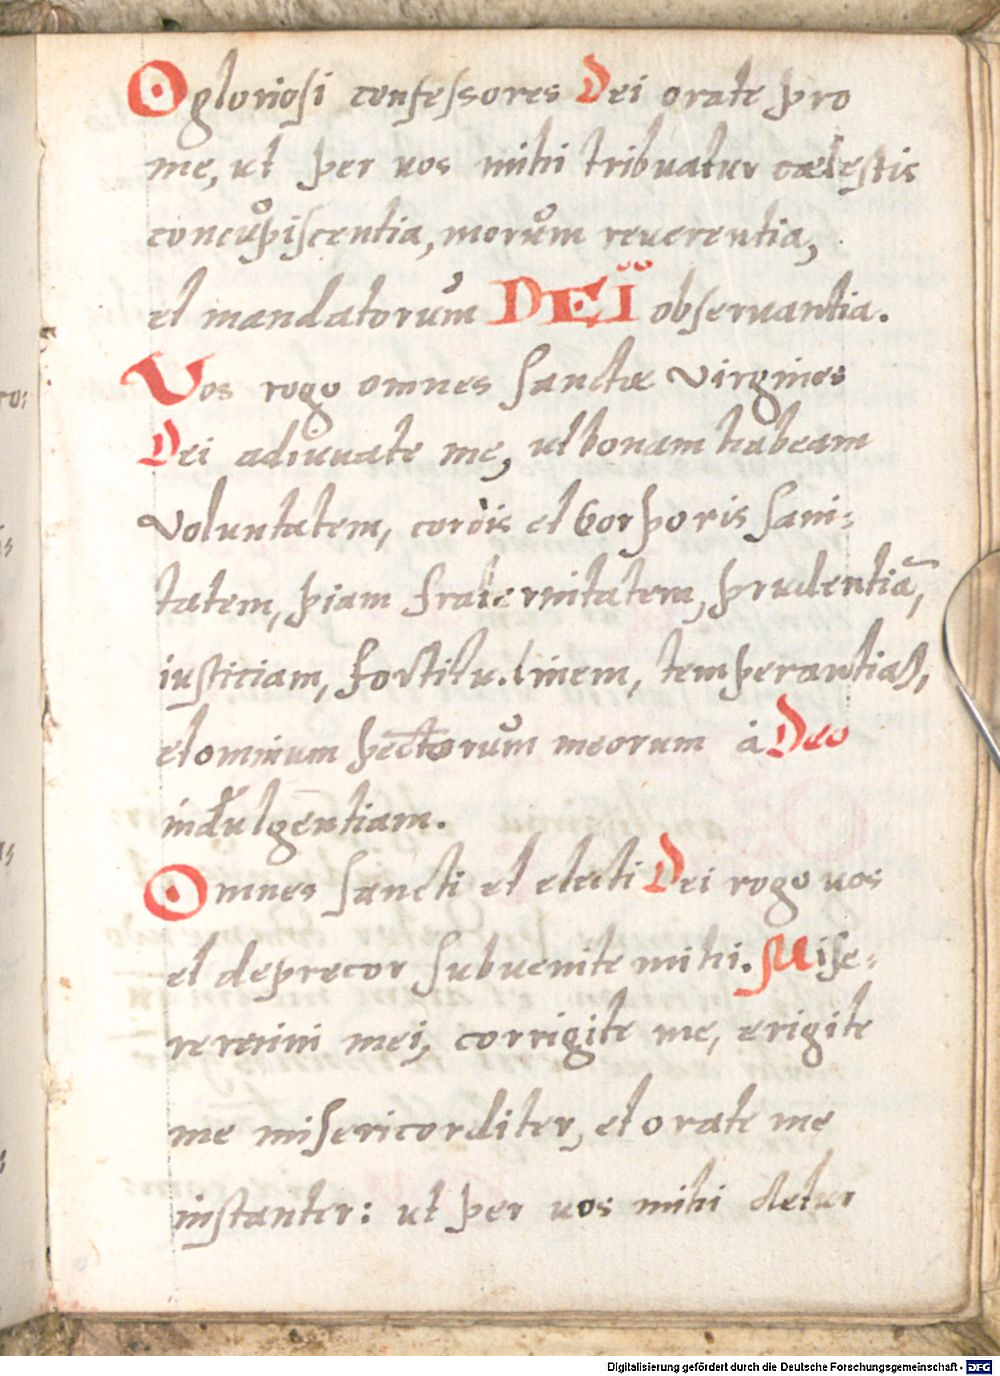 O gloriosi confessores Dei orate pro
me, ut per uos mihi tribuatur cælestis
concŭpiscentia, morŭm reuerentia,
et mandatorŭm DEI obseruantia.
Vos rogo omnes sanctæ virgines
Dei adiuuate me, ut bonam habeam
voluntatem, cordis et Corporis sani:
tatem, piam fraternitatem, prudentiā,
iusticiam, fortitudinem, temperantiam,
et omnium pectorŭm meorum à Deo
indulgentiam.
Omnes sancti et electi Dei rogo uos
et deprecor subuenite mihi. Mise:
reremini mei, corrigite me, erigite
me misericorditer, et orate me
instanter: ut per uos mihi detur
Digitalisierung gefördert durch die Deutsche Forschungsgemeinschaft - DFG